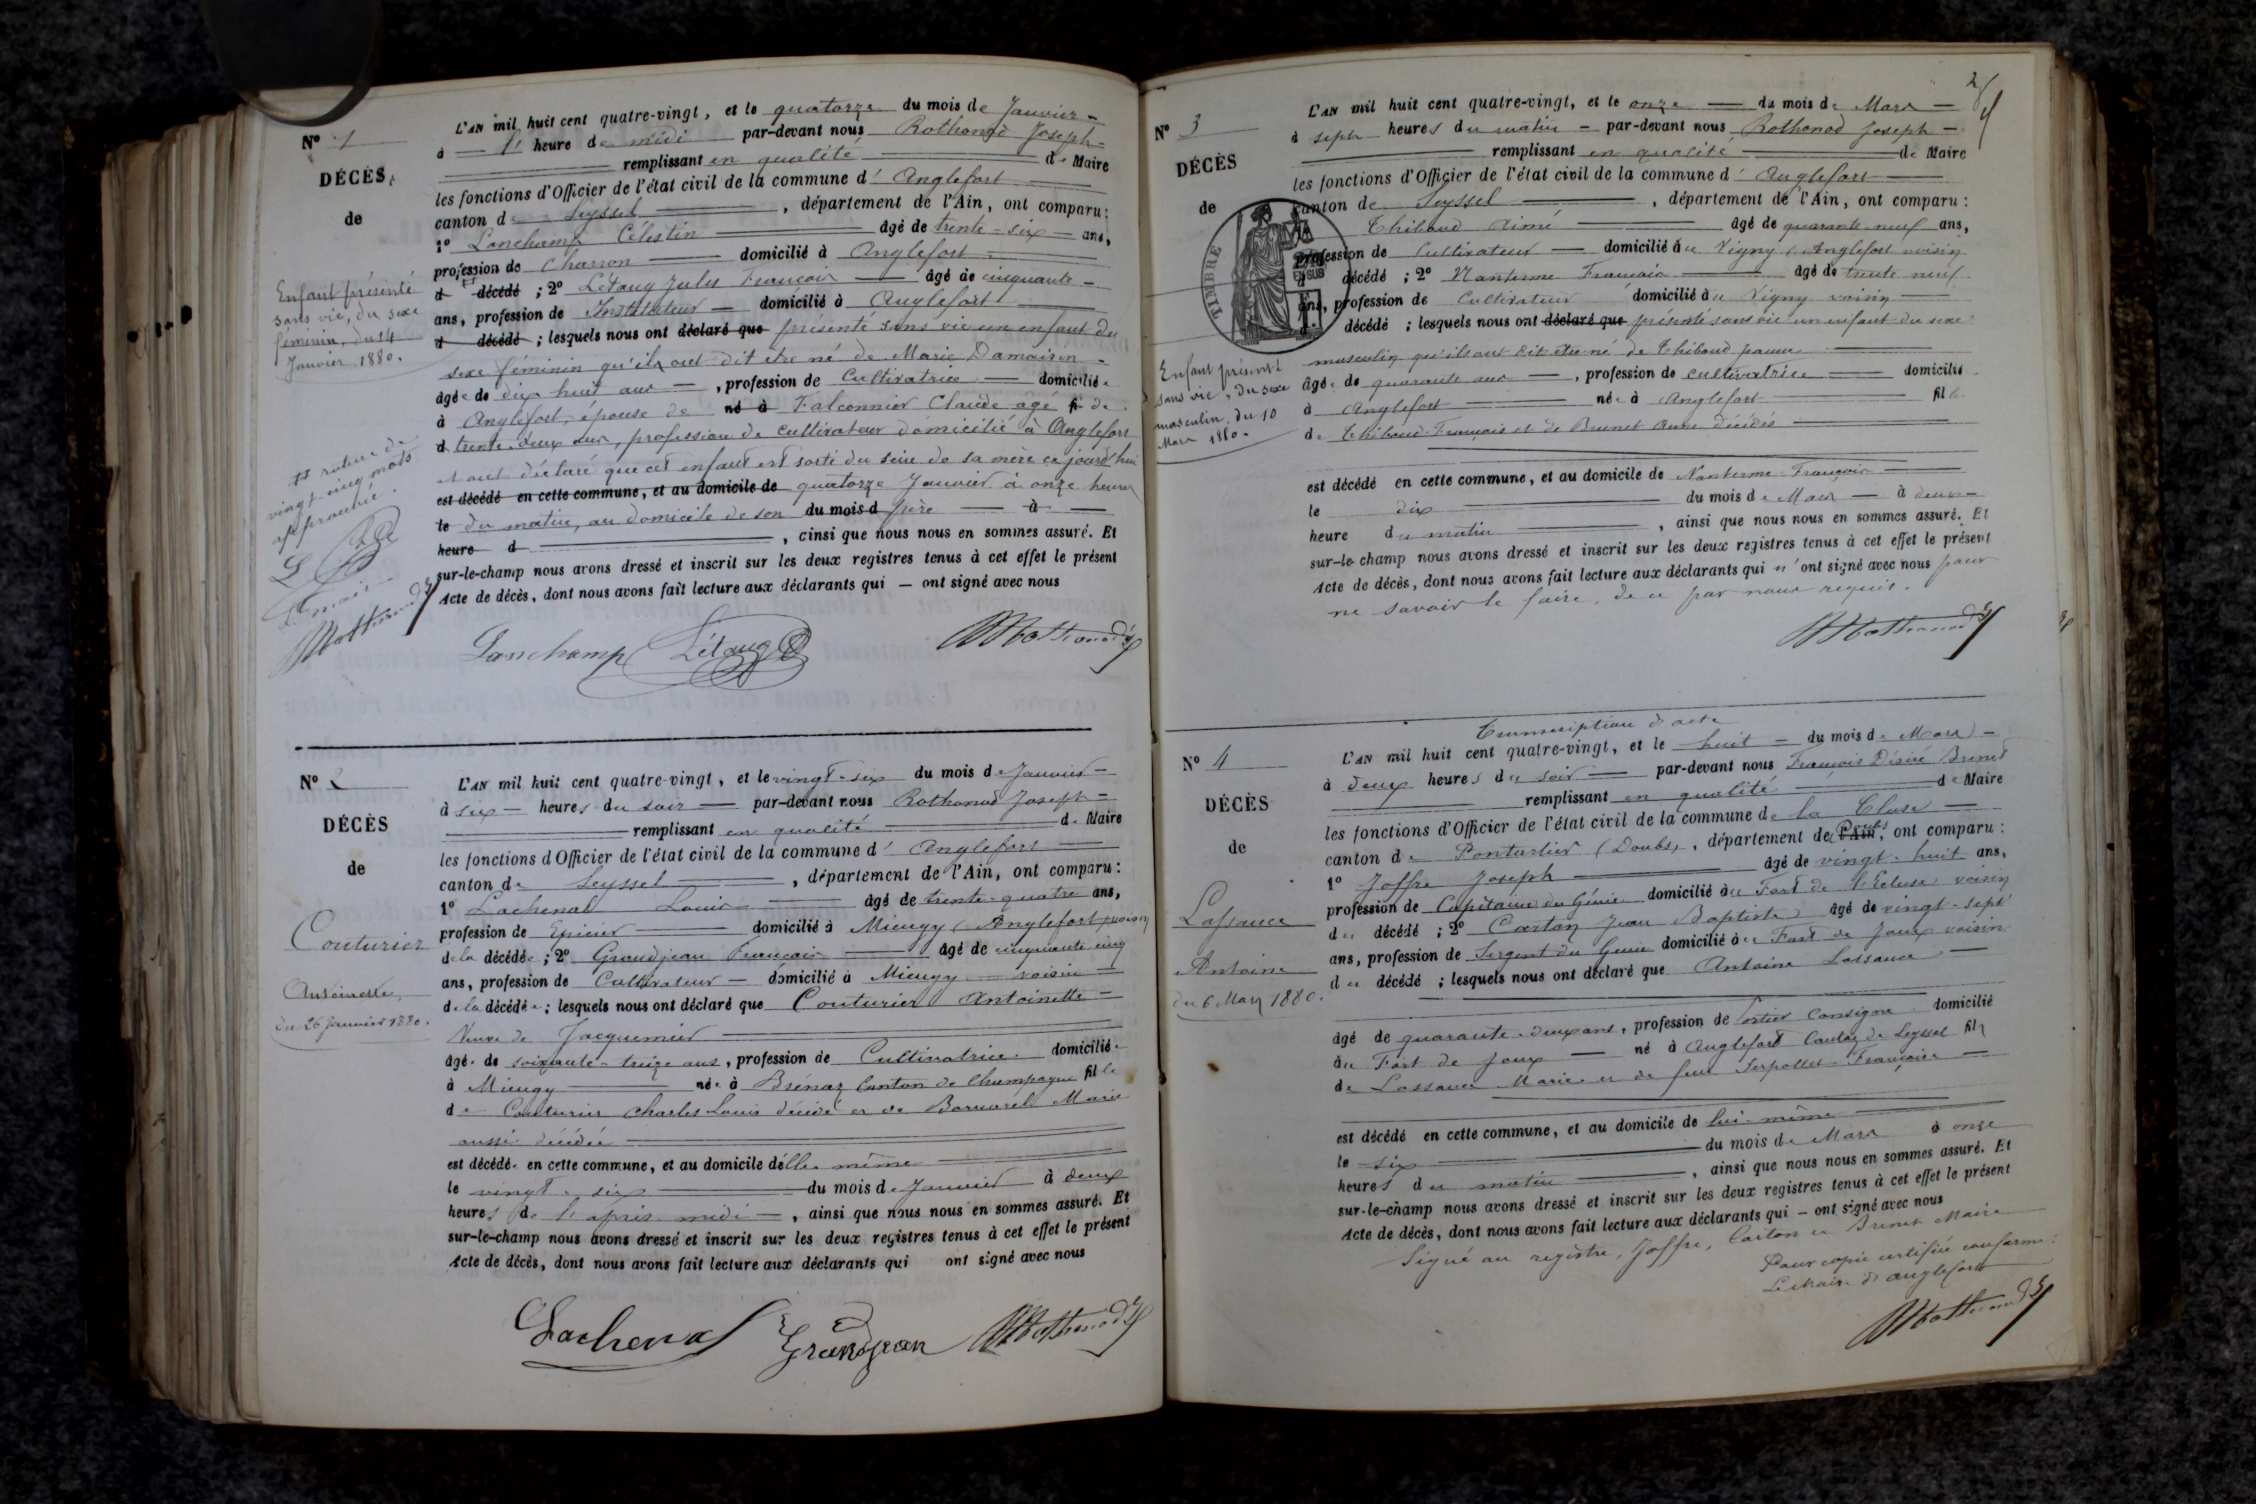 N° 1
DÉCÈS
de
Enfant présenté
sans vie, du sexe
féminin, du 14
Janvier 1880.
L'AN mil huit cent quatre-vingt, et le quatorze du mois de Janvier
à 1 heure de midi par-devant nous Rothonod Joseph
remplissant en qualité de Maire
les fonctions d'Officier de l'état civil de la commune d'Anglefort
canton de Seyssel, département de l'Ain, ont comparu:
1° Lanchamp Célestin âgé de trente-six ans,
profession de Charron domicilié à Anglefort
d décédé ; 2° Létang Jules François âgé de cinquante
ans, profession de Instituteur domicilié à Anglefort
d décédé ; lesquels nous ont déclaré que présenté sans vie un enfant du
sexe féminin qu'ils ont dit être né de Marie Damaisin
âgée de dix huit ans, profession de Cultivatrice domiciliée
à Anglefort, épouse de né à Falconnier Claude agé fi de
d trente-deux ans, profession de cultivateur domicilié à Anglefort
et ont déclaré que cet enfant est sorti du sein de sa mère ce jourd'hui
est décédé en cette commune, et au domicile de quatorze Janvier à onze heures
le du matin, au domicile de son du mois d père à
heure d, ainsi que nous nous en sommes assuré. Et
sur-le-champ nous avons dressé et inscrit sur les deux registres tenus à cet effet le présent
Acte de décès, dont nous avons fait lecture aux déclarants qui — ont signé avec nous
rature de
vingt-cinq mots
approuvé.
Lanchamp Létang Rothonod
N° 2
DÉCÈS
de
Couturier
Antoinette
du 26 Janvier 1880.
L'AN mil huit cent quatre-vingt, et le vingt-six du mois de Janvier
à six heures du soir par-devant nous Rothonod Joseph
remplissant en qualité de Maire
les fonctions d'Officier de l'état civil de la commune d'Anglefort
canton de Seyssel, département de l'Ain, ont comparu:
1° Lachenal Louis âgé de trente-quatre ans,
profession de Epicier domicilié à Mieugy (Anglefort) voisin
de la décédée ; 2° Grandjean François âgé de cinquante cinq
ans, profession de Cultivateur domicilié à Mieugy voisin
de la décédée ; lesquels nous ont déclaré que Couturier Antoinette
Veuve de Jacquemier
âgée de soixante-treize ans, profession de Cultivatrice domiciliée
à Mieugy née à Brénaz Canton de Champagne fille
de Couturier Charles Louis décédé et de Bornarel Marie
aussi décédée
est décédée en cette commune, et au domicile d'elle même
le vingt-six du mois de Janvier à deux
heures de l'après-midi, ainsi que nous nous en sommes assuré. Et
sur-le-champ nous avons dressé et inscrit sur les deux registres tenus à cet effet le présent
Acte de décès, dont nous avons fait lecture aux déclarants qui ont signé avec nous
Lachenal Grandjean Rothonod
N° 3
DÉCÈS
de
TIMBRE
Enfant présenté
sans vie, du sexe
masculin, du 10
Mars 1880.
L'AN mil huit cent quatre-vingt, et le onze du mois de Mars
à sept heures du matin par-devant nous Rothonod Joseph
remplissant en qualité de Maire
les fonctions d'Officier de l'état civil de la commune d'Anglefort
canton de Seyssel, département de l'Ain, ont comparu :
Thibaud Aimé âgé de quarante neuf ans,
profession de Cultivateur domicilié à Vigny (Anglefort) voisin
décédé ; 2° Nanterme François âgé de trente neuf
ans, profession de Cultivateur domicilié à Vigny voisin
décédé ; lesquels nous ont déclaré que présenté sans vie un enfant du sexe
masculin qu'ils ont dit être né de Thibaud
âgée de quarante ans, profession de cultivatrice domicilié
à Anglefort née à Anglefort fille
de Thibaud François et de Brunet Anne décédés
est décédé en cette commune, et au domicile de Nanterme François
le dix du mois de Mars à deux
heure du matin, ainsi que nous nous en sommes assuré. Et
sur-le-champ nous avons dressé et inscrit sur les deux registres tenus à cet effet le présent
Acte de décès, dont nous avons fait lecture aux déclarants qui n'ont signé avec nous pour
ne savoir le faire, de ce par nous requis.
Rothonod
N° 4
DÉCÈS
de
Lassance
Antoine
du 6 Mars 1880.
Transcription d'acte
L'AN mil huit cent quatre-vingt, et le huit du mois de Mars
à deux heures du soir par-devant nous François Désiré Brunet
remplissant en qualité de Maire
les fonctions d'Officier de l'état civil de la commune de la Cluse
canton de Pontarlier (Doubs), département de l'Ain Doubs, ont comparu :
1° Joffre Joseph âgé de vingt-huit ans,
profession de Capitaine du Génie domicilié au Fort de l'Ecluse voisin
du décédé ; 2° Carton Jean Baptiste âgé de vingt-sept
ans, profession de Sergent du Génie domicilié au Fort de Joux voisin
du décédé ; lesquels nous ont déclaré que Antoine Lassance
âgé de quarante-deux ans, profession de Portier Consigne domicilié
au Fort de Joux né à Anglefort Canton de Seyssel fils
de Lassance Marie et de feu Serpollet François
est décédé en cette commune, et au domicile de lui-même
le six du mois de Mars à onze
heures du matin, ainsi que nous nous en sommes assuré. Et
sur-le-champ nous avons dressé et inscrit sur les deux registres tenus à cet effet le présent
Acte de décès, dont nous avons fait lecture aux déclarants qui — ont signé avec nous
Signé au registre, Joffre, Carton et Brunet Maire
Pour copie certifiée conforme :
Le Maire d'Anglefort
Rothonod